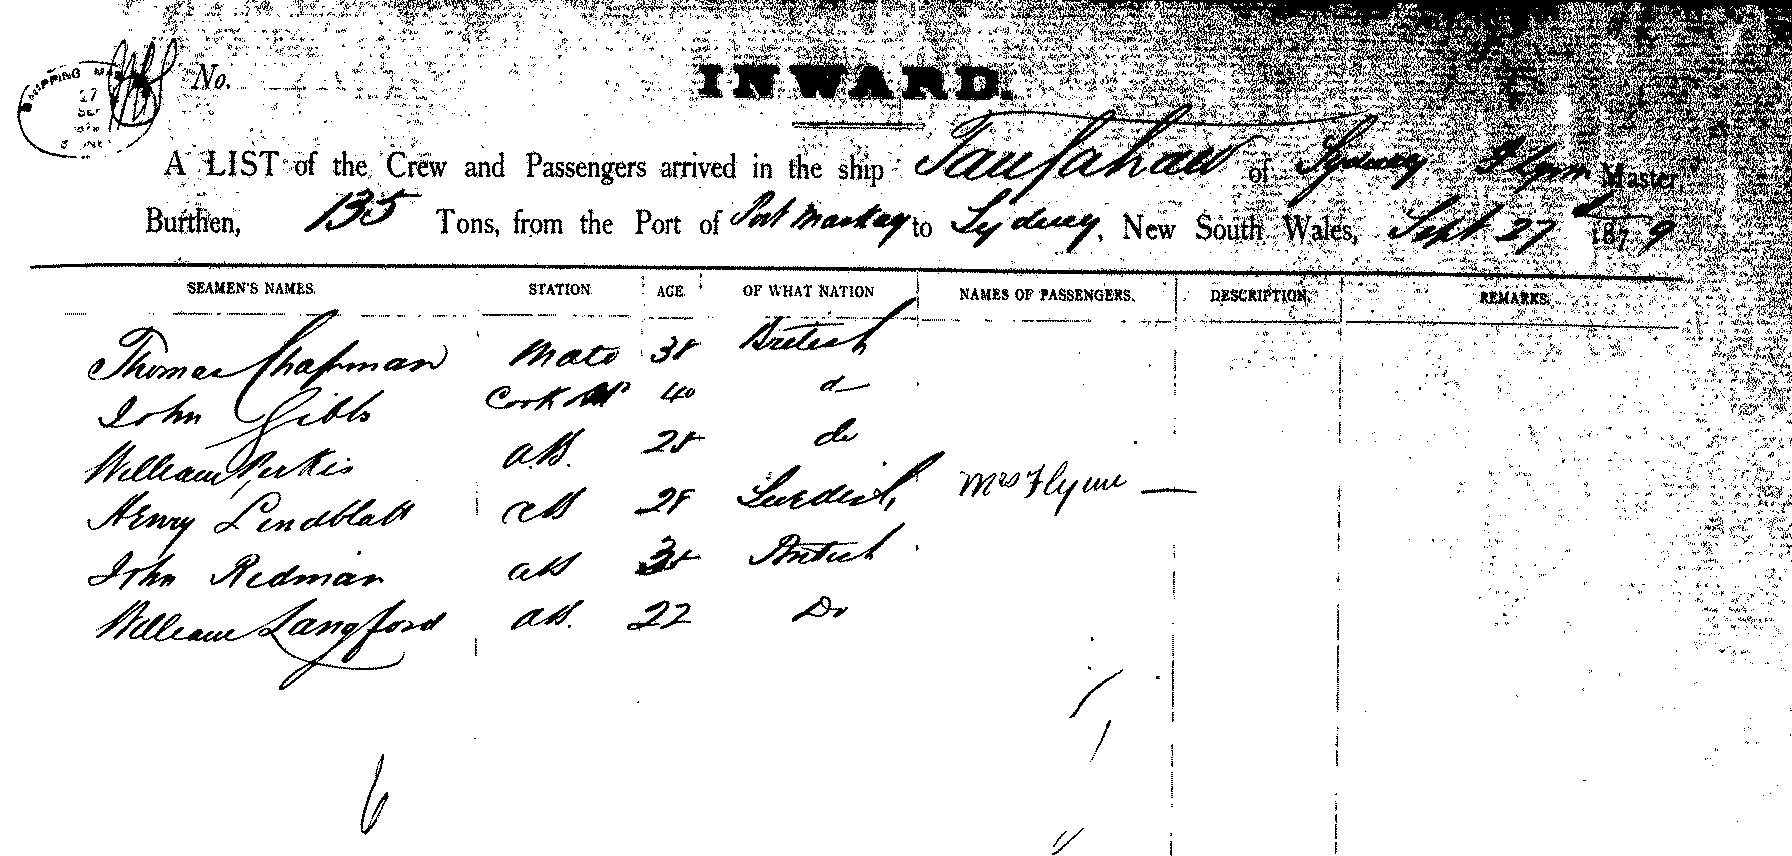 SHIPPING MAS
27
SEP
No.
INWARD.
A LIST of the Crew and Passengers arrived in the ship Taufahau of Sydney Flynn Master,
Burthen, 135 Tons, from the Port of Port Mackay to Sydney, New South Wales, Sept 27 1879
SEAMEN'S NAMES. STATION AGE. OF WHAT NATION NAMES OF PASSENGERS. DESCRIPTION. REMARKS.
Thomas Chapman Mate 38 British
John Gibbs Cook 40 do
William Perkis AB. 28 do
Henry Lindblatt AB 28 Swedish Mrs Flynn —
John Redman AB British
William Langford AB. 22 Do
6